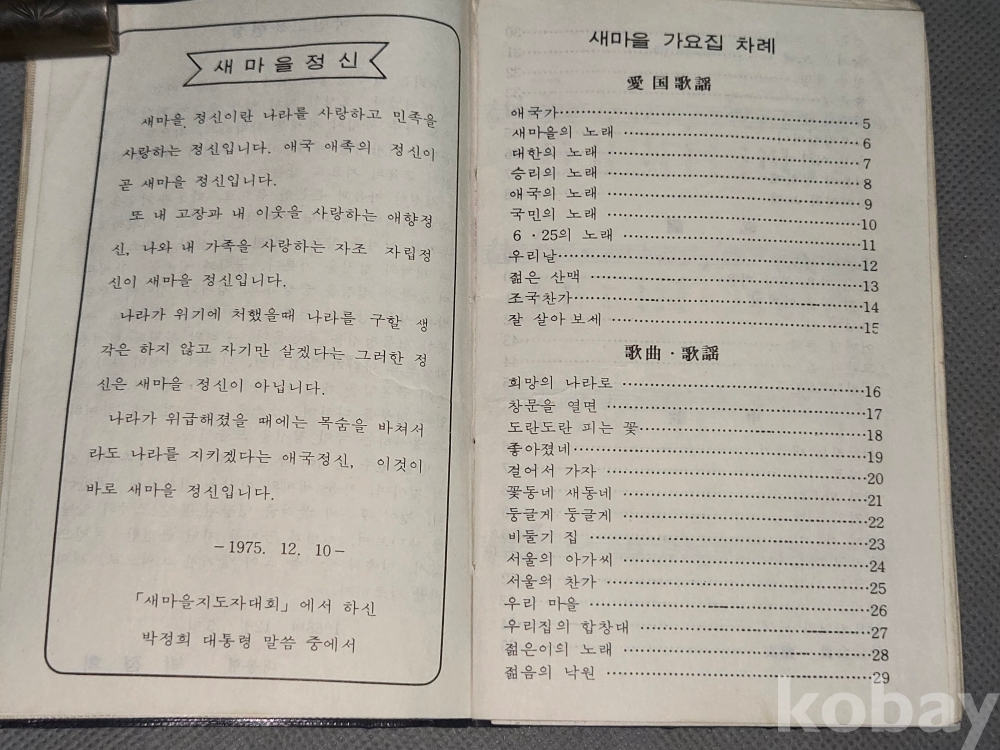 새마을정신
새마을 정신이란 나라를 사랑하고 민족을
사랑하는 정신입니다. 애국 애족의 정신이
곧 새마을 정신입니다.
또 내 고장과 내 이웃을 사랑하는 애향정
신, 나와 내 가족을 사랑하는 자조 자립정
신이 새마을 정신입니다.
나라가 위기에 처했을때 나라를 구할 생
각은 하지 않고 자기만 살겠다는 그러한 정
신은 새마을 정신이 아닙니다.
나라가 위급해졌을 때에는 목숨을 바쳐서
라도 나라를 지키겠다는 애국정신, 이것이
바로 새마을 정신입니다.
-1975. 12. 10-
「새마을지도자대회」에서 하신
박정희 대통령 말씀 중에서
새마을 가요집 차례
愛国歌謠
애국가 5
새마을의 노래 6
대한의 노래 7
승리의 노래 8
애국의 노래 9
국민의 노래 10
6·25의 노래 11
우리날 12
젊은 산맥 13
조국찬가 14
잘 살아 보세 15
歌曲·歌謠
희망의 나라로 16
창문을 열면 17
도란도란 피는 꽃 18
좋아졌네 19
걸어서 가자 20
꽃동네 새동네 21
둥글게 둥글게 22
비둘기 집 23
서울의 아가씨 24
서울의 찬가 25
우리 마을 26
우리집의 합창대 27
젊은이의 노래 28
젊음의 낙원 29
kobay